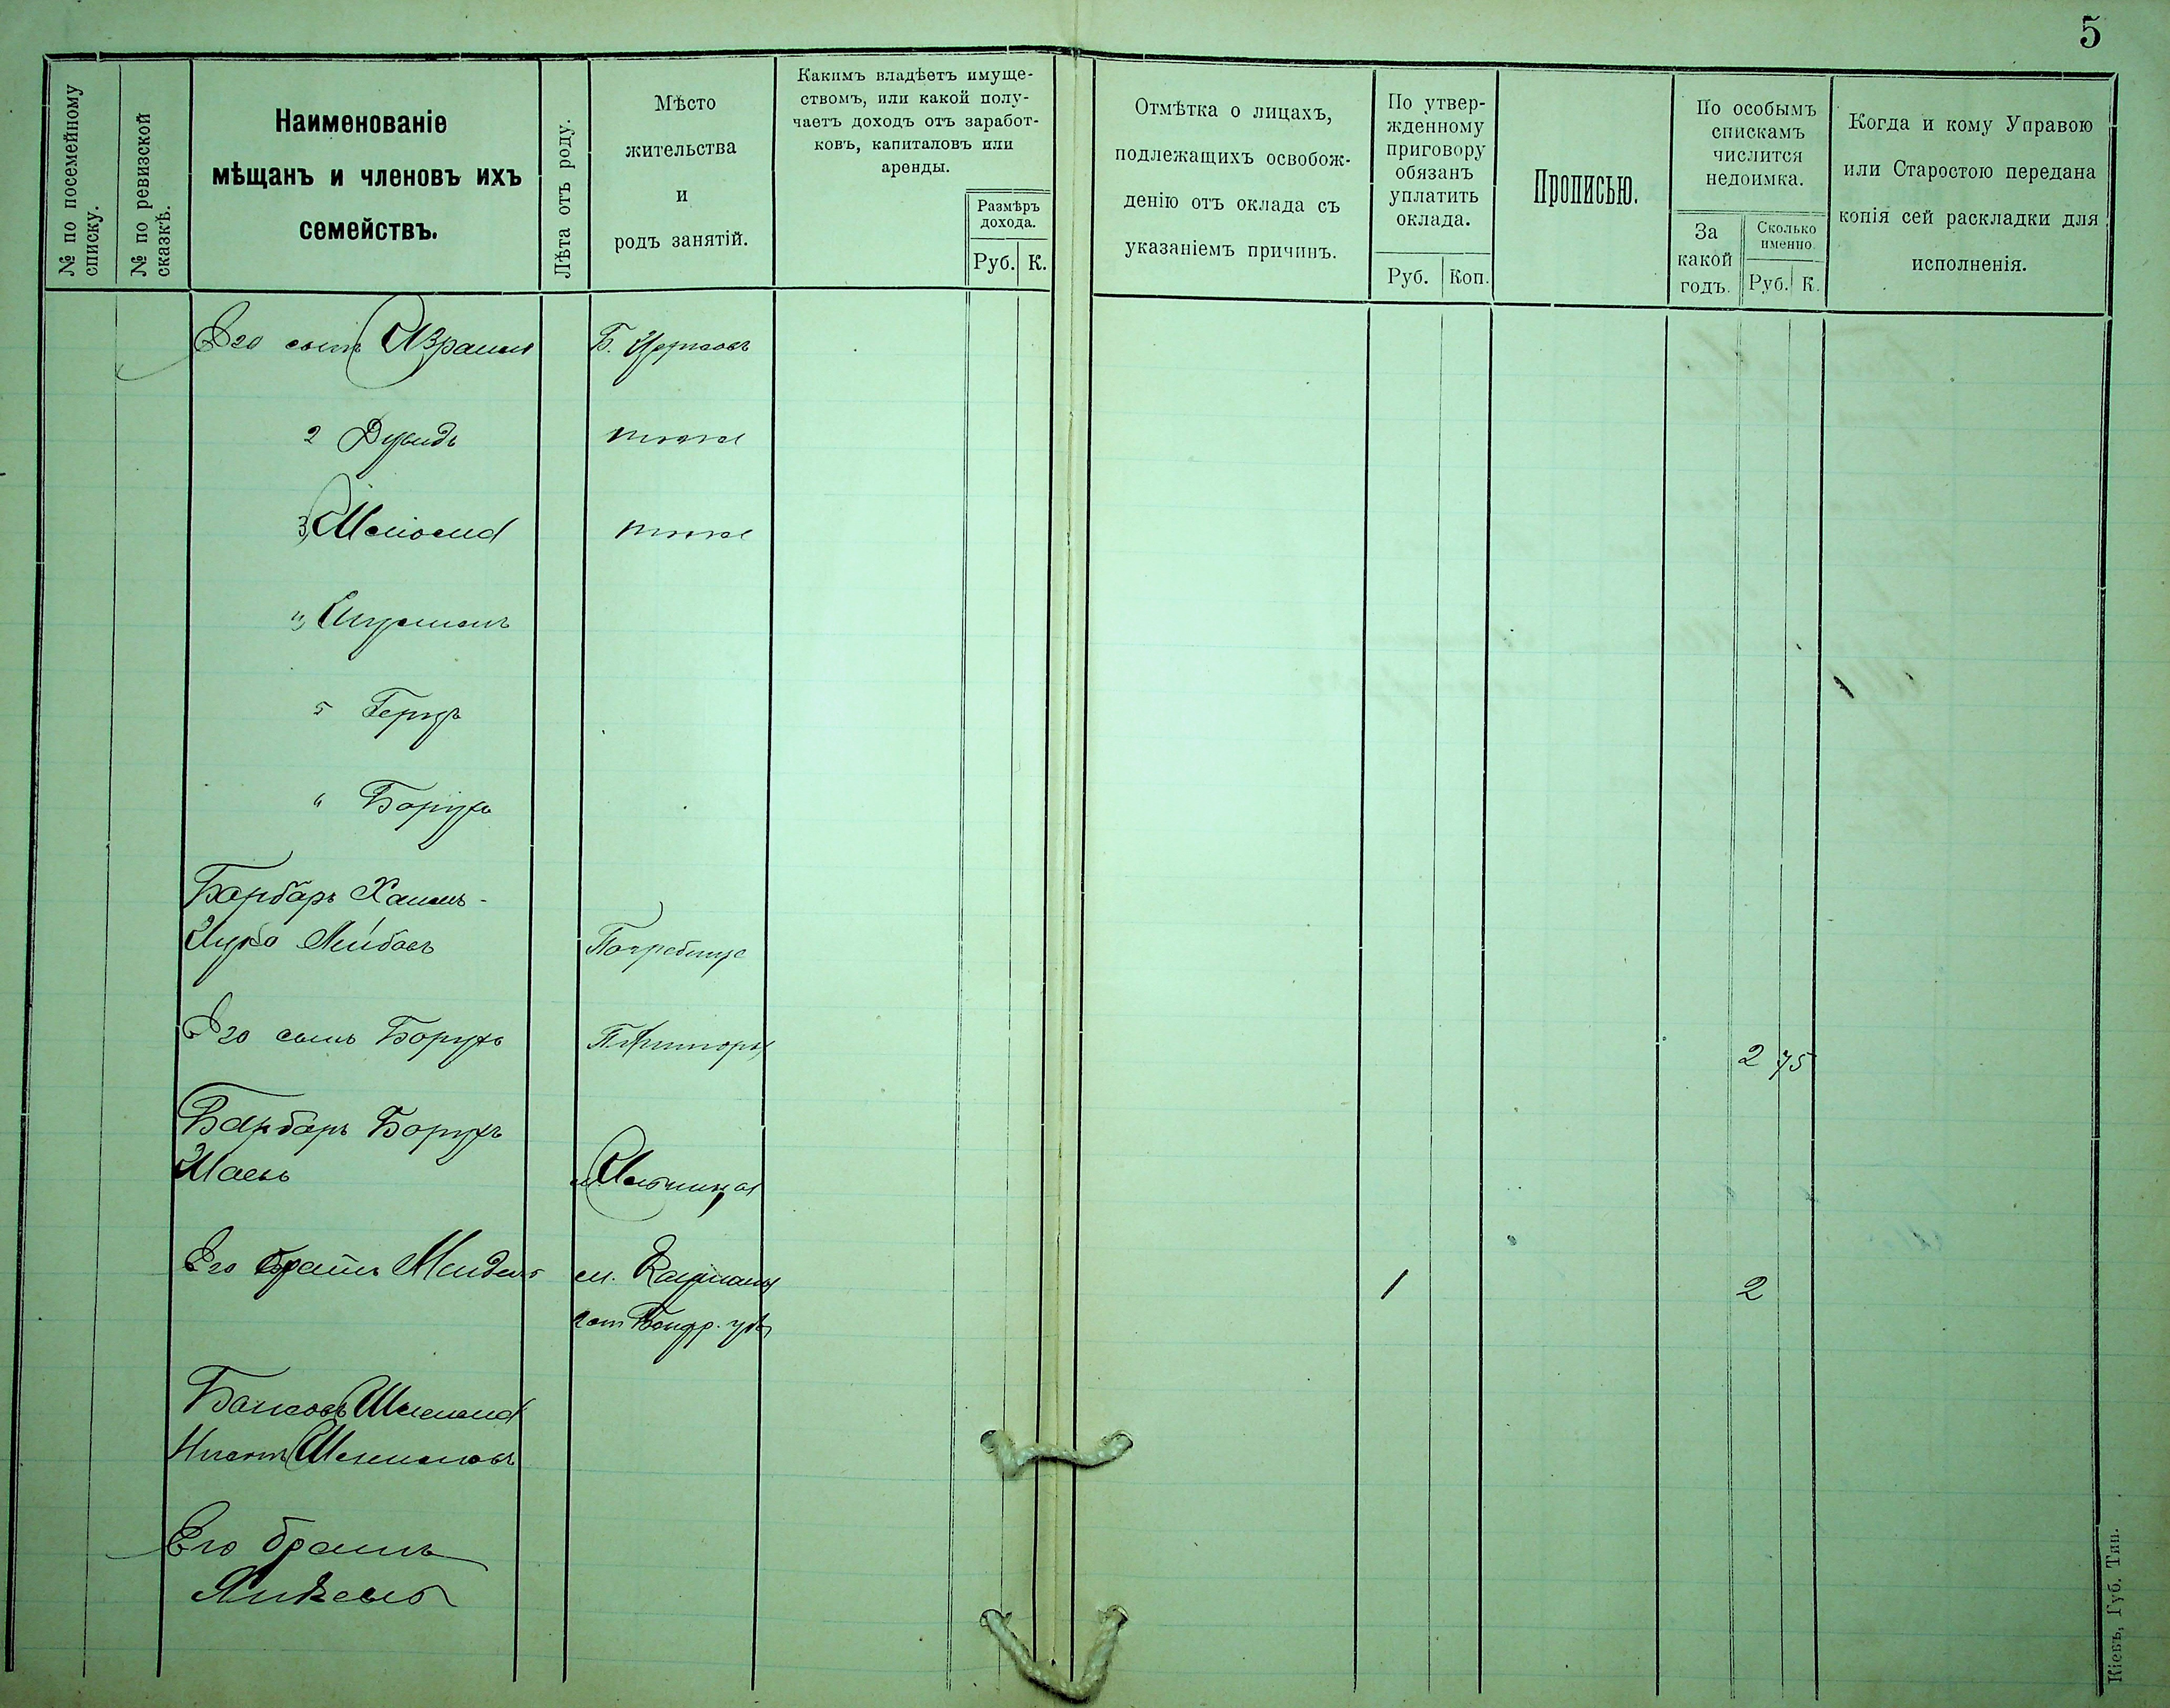 5
№ по посемейному
списку.
№ по ревизской
сказкѣ.
Наименованіе
мѣщанъ и членовъ ихъ
семействъ.
Лѣта отъ роду.
Мѣсто
жительства
и
родъ занятій.
Какимъ владѣетъ имуще-
ствомъ, или какой полу-
чаетъ доходъ отъ заработ-
ковъ, капиталовъ или
аренды.
Размѣръ
дохода.
Руб. К.
Отмѣтка о лицахъ,
подлежащихъ освобож-
денію отъ оклада съ
указаніемъ причинъ.
По утвер-
жденному
приговору
обязанъ
уплатить
оклада.
Руб. Коп.
Прописью.
По особымъ
спискамъ
числится
недоимка.
За
какой
годъ.
Сколько
именно.
Руб. К.
Когда и кому Управою
или Старостою передана
копія сей раскладки для
исполненія.
Его сынъ Израиль Б. Церковь
2 Дувидъ тоже
3, тоже
5 Герцъ
" Борухъ
Барбаръ Хаимъ-
Лейбовъ Погребище
Его сынъ Борухъ 2 75
Барбаръ Борухъ
Его братъ Мендель м. 1 2
Его братъ
Янкель
Кіевъ, Губ. Тип.